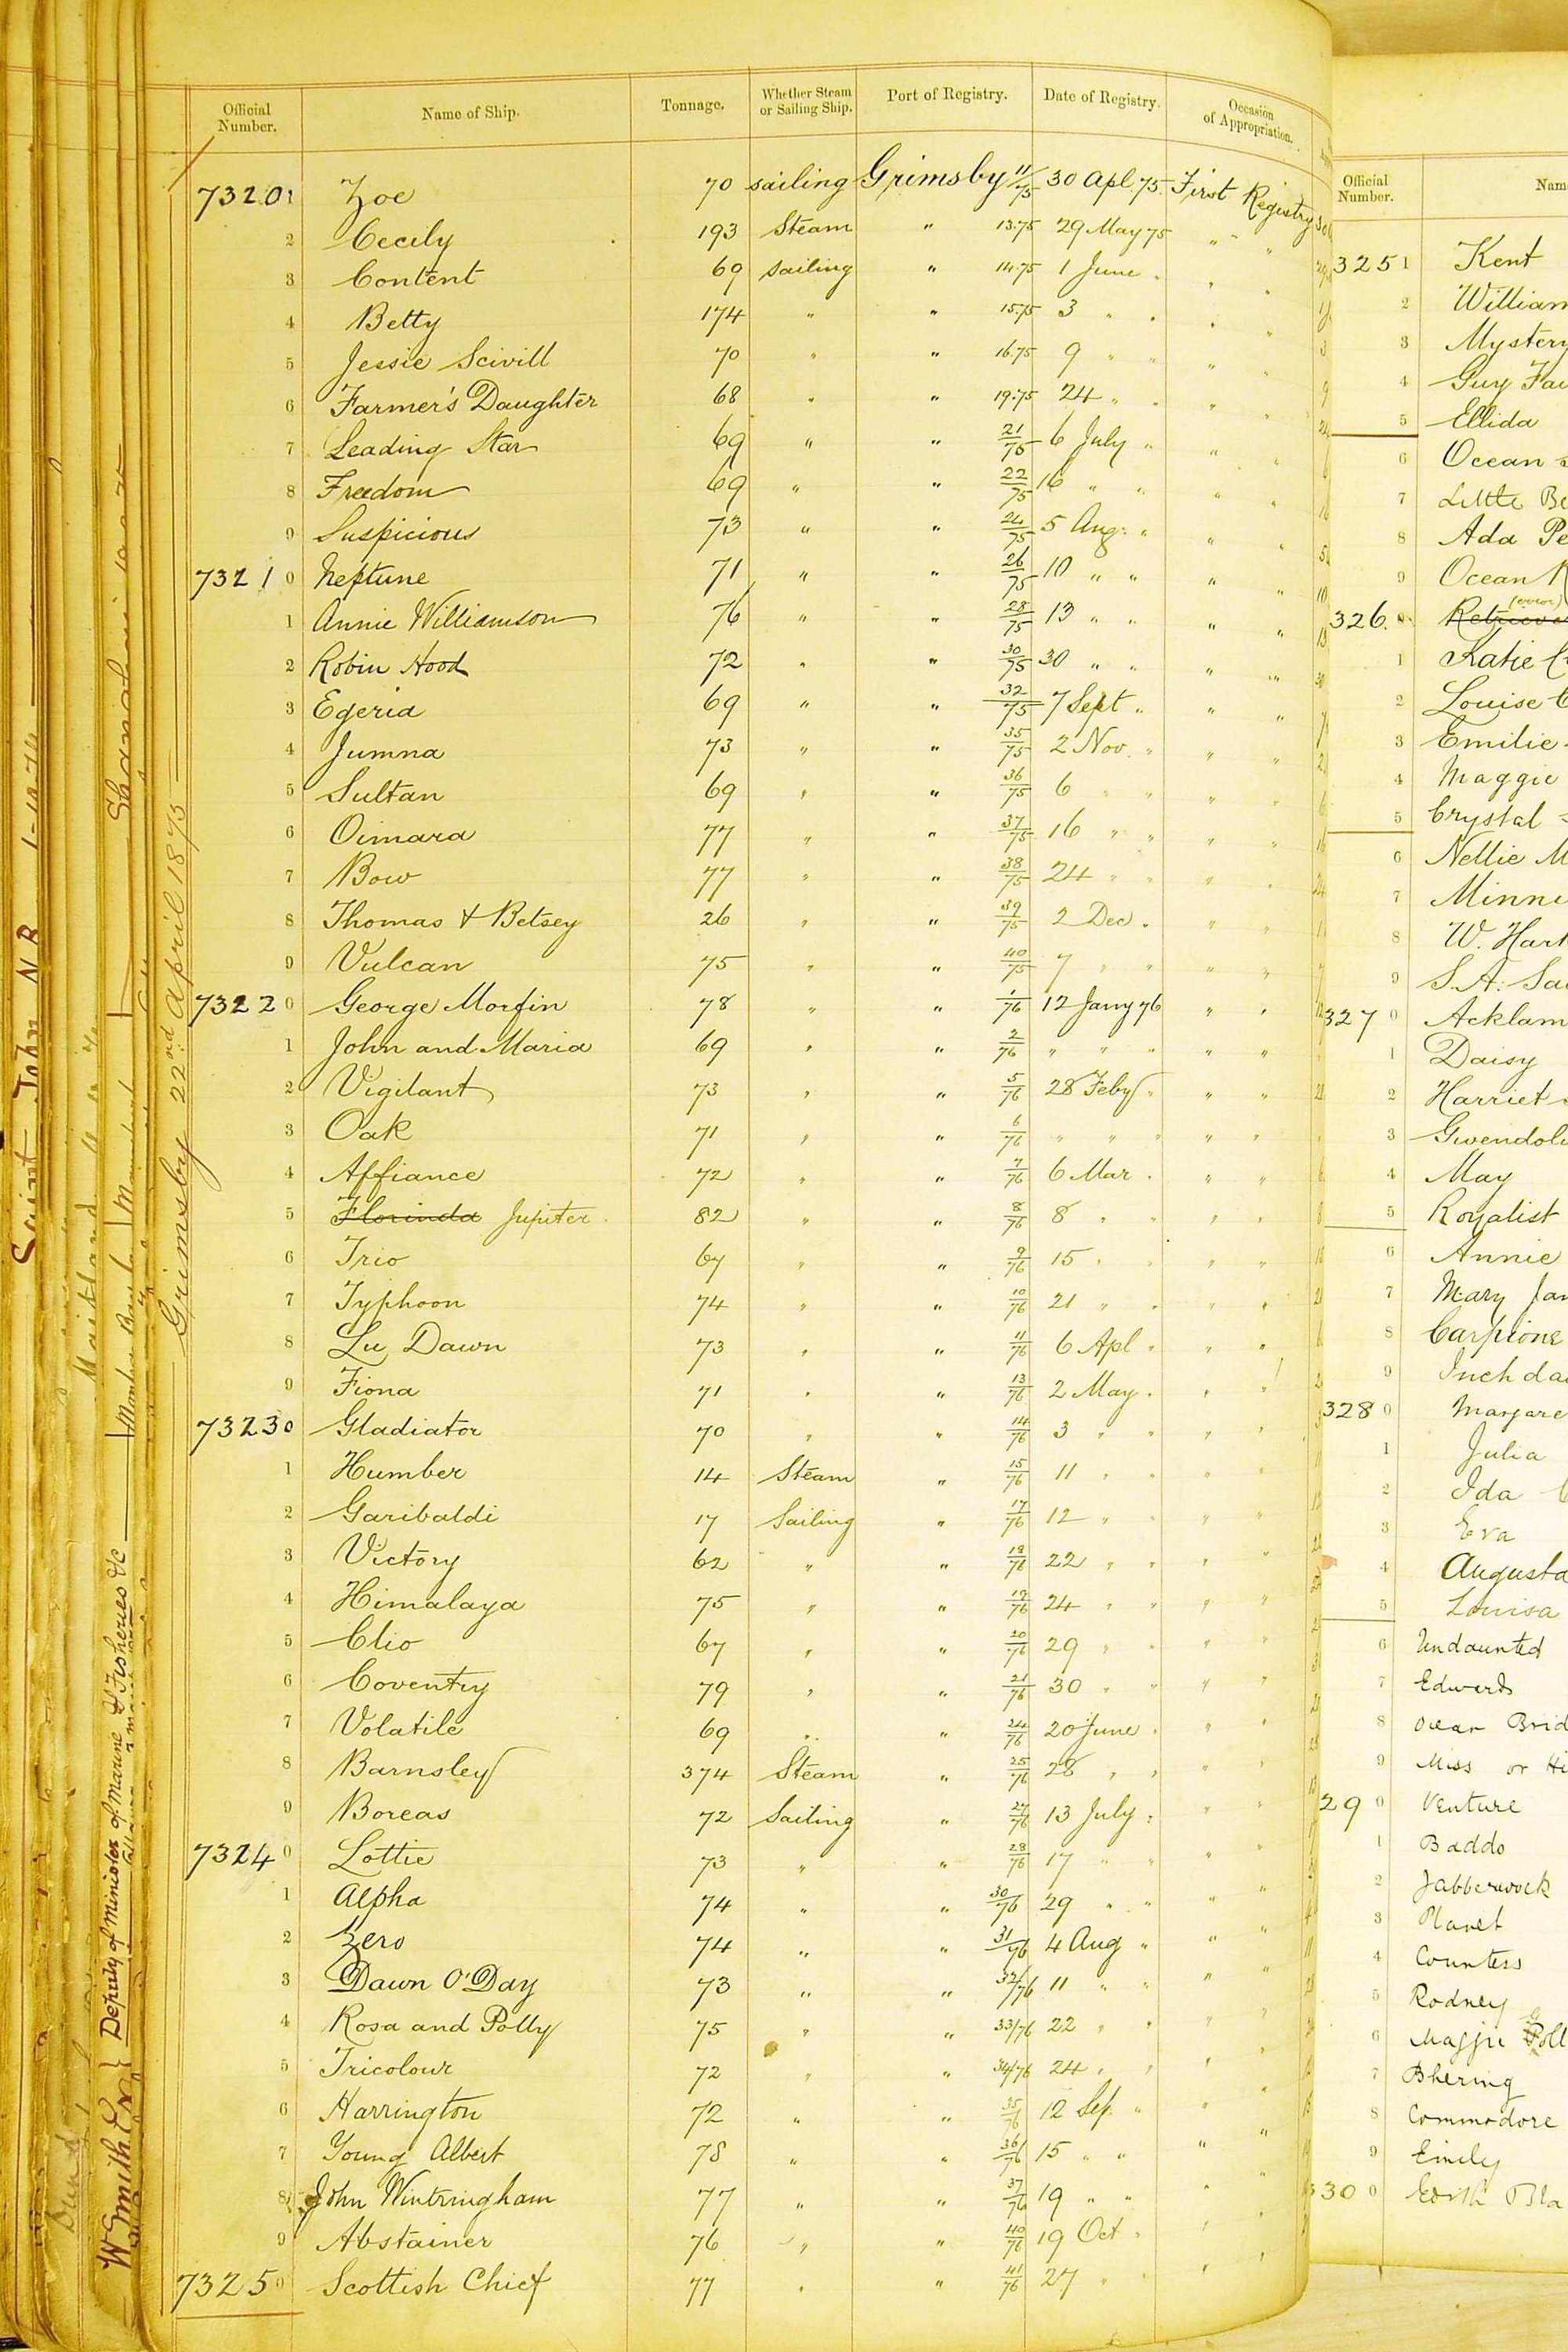 Official Number. Name of Ship. Tonnage. Whether Steam or Sailing Ship. Port of Registry. Date of Registry. Occasion of Appropriation.
73201 Zoe 70 sailing Grimsby 11/75 30 Apl. 75 First Registry
2 Cecily 193 Steam " 13.75 29 May 75 " "
3 Content 69 sailing " 14.75 1 June " " "
4 Betty 174 " " 15.75 3 " " " "
5 Jessie Scivill 70 " " 16.75 9 " " " "
6 Farmer's Daughter 68 " " 19.75 24 " " " "
7 Leading Star 69 " " 21/75 6 July " " "
8 Freedom 69 " " 22/75 16 " " " "
9 Suspicious 73 " " 24/75 5 Aug: " " "
73210 Neptune 71 " " 26/75 10 " " " "
1 Annie Williamson 76 " " 28/75 13 " " " "
2 Robin Hood 72 " " 30/75 30 " " " "
3 Egeria 69 " " 32/75 7 Sept " " "
4 Jumna 73 " " 35/75 2 Nov. " " "
5 Sultan 69 " " 36/75 6 " " " "
6 Oimara 77 " " 37/75 16 " " " "
7 Bow 77 " " 38/75 24 " " " "
8 Thomas & Betsey 26 " " 39/75 2 Dec " " "
9 Vulcan 75 " " 40/75 7 " " " "
73220 George Morfin 78 " " 1/76 12 Jany 76 " "
1 John and Maria 69 " " 2/76 " " " " "
2 Vigilant 73 " " 5/76 28 Feby " " "
3 Oak 71 " " 6/76 " " " " "
4 Affiance 72 " " 7/76 6 Mar " " "
5 Florinda Jupiter 82 " " 8/76 8 " " " "
6 Trio 67 " " 9/76 15 " " " "
7 Typhoon 74 " " 10/76 21 " " " "
8 Lu Dawn 73 " " 11/76 6 Apl " " "
9 Fiona 71 " " 13/76 2 May " " "
73230 Gladiator 70 " " 14/76 3 " " " "
1 Humber 14 Steam " 15/76 11 " " " "
2 Garibaldi 17 Sailing " 17/76 12 " " " "
3 Victory 62 " " 18/76 22 " " " "
4 Himalaya 75 " " 19/76 24 " " " "
5 Clio 67 " " 20/76 29 " " " "
6 Coventry 79 " " 21/76 30 " " " "
7 Volatile 69 " " 24/76 20 June " " "
8 Barnsley 374 Steam " 25/76 28 " " " "
9 Boreas 72 Sailing " 27/76 13 July " " "
73240 Lottie 73 " " 28/76 17 " " " "
1 Alpha 74 " " 30/76 29 " " " "
2 Zero 74 " " 31/76 4 Aug " " "
3 Dawn O'Day 73 " " 32/76 11 " " " "
4 Rosa and Polly 75 " " 33/76 22 " " " "
5 Tricolour 72 " " 34/76 24 " " " "
6 Harrington 72 " " 35/76 12 Sep. " " "
7 Young Albert 78 " " 36/76 15 " " " "
8 John Wintringham 77 " " 37/76 19 " " " "
9 Abstainer 76 " " 40/76 19 Oct " " "
73250 Scottish Chief 77 " " 41/76 27 " " " "
Grimsby 22nd April 1875
Saint John N B
Maitland
W Smith Esq } Deputy of Minister of Marine & Fisheries &c
Official Number. Nam
3251 Kent
2 William
3 Mystery
4 Guy Fa
5 Ellida
6 Ocean
7 Little Be
8 Ada Pe
9 Ocean
326 0 Retriever (error)
1 Katie
2 Louise
3 Emilie
4 Maggie
5 Crystal
6 Nellie M
7 Minni
8 W. Hart
9 S. A. Sa
327 0 Acklam
1 Daisy
2 Harriet
3 Gwendol
4 May
5 Royalist
6 Annie
7 Mary Jan
8 Carpione
9 Inch da
328 0 Margare
1 Julia
2 Ida
3 Eva
4 Augusta
5 Louisa
6 Undaunted
7 Edwards
8 Ocean Brid
9 Miss or Hi
29 0 Venture
1 Baddo
2 Jabberwock
3 Planet
4 Countess
5 Rodney
6 Maggie
7 Bhering
8 Commodore
9 Emily
330 0 Edith Bla